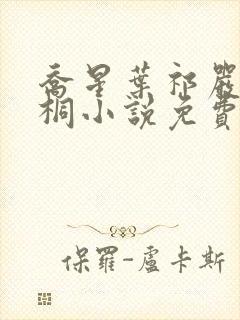 喬星葉祁嚴
桐小說免費
保羅-盧卡斯